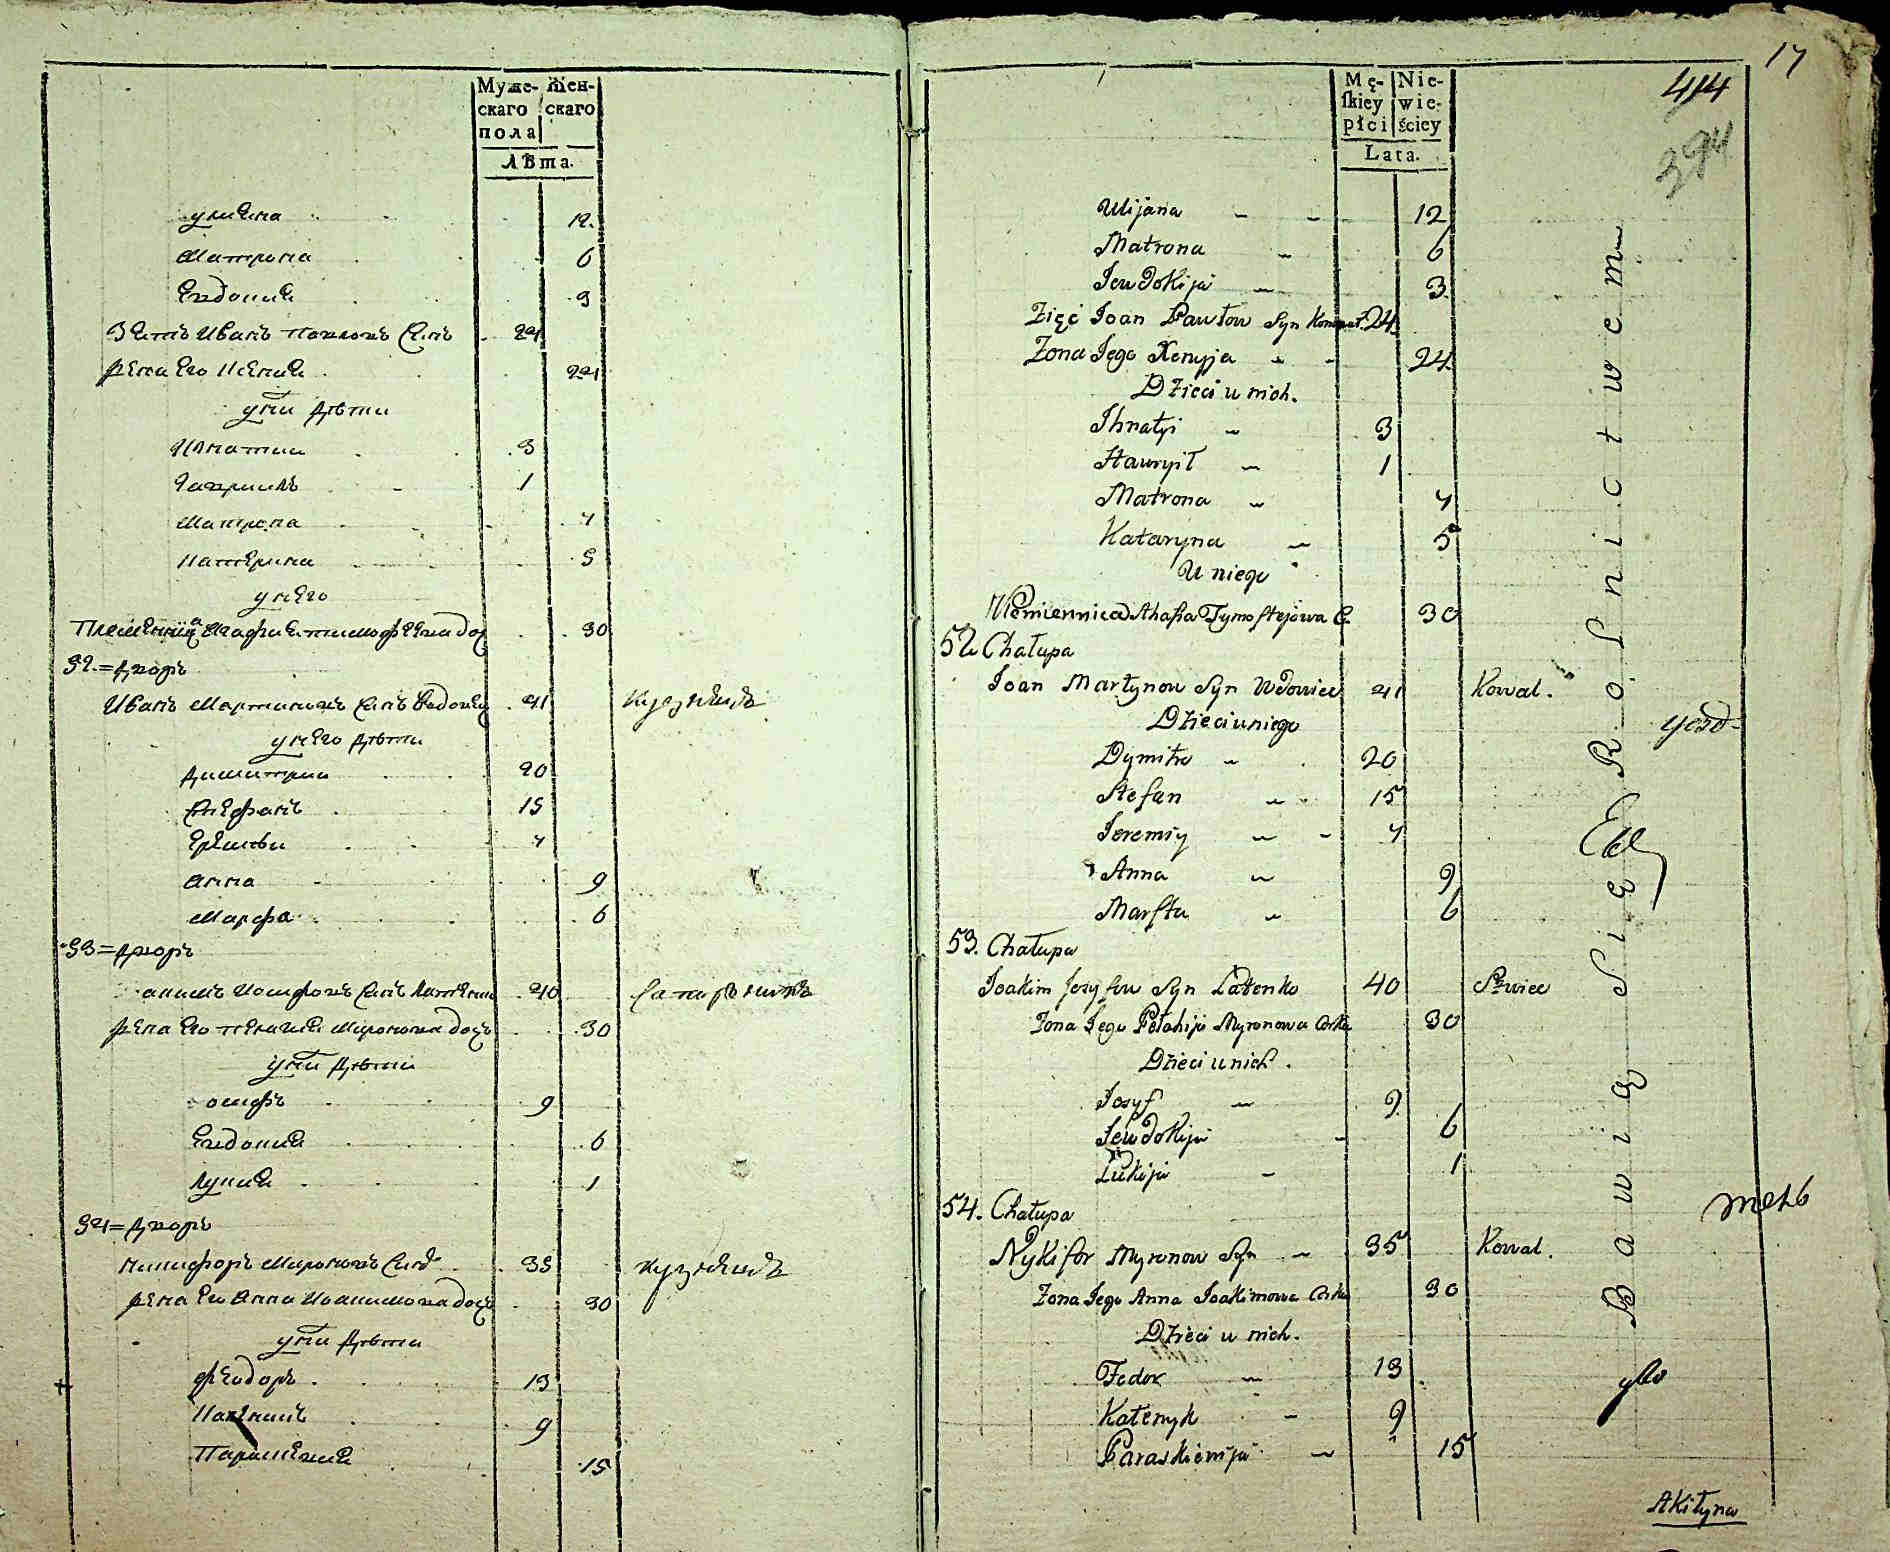 Муже-
скаго
пола
Жен-
скаго
Лѣта.
улиꙗна 12.
Матрона 6
Евдокиꙗ 3
Зꙗть Иванъ Павловъ Сынъ 24
Жена Его Ксениꙗ 24
у ни дѣти
Игнатии 3
Гавриилъ 1
Матрона 7
Катерина 5
у него
Племенница Агафиꙗ тимофѣева доч 30
52.= дворъ
Иванъ Мартиновъ Сынъ Вдовец 41 кузнецъ
у него дѣти
димитрии 20
Стефанъ 15
Еремѣи 7
Анна 9
Марфа 6
53= дворъ
акимъ Иосифовъ Сынъ Латенко 40
Жена Его пелагиꙗ Миронова доч 30
у ни дѣти
осифъ 9
Евдокиꙗ 6
Лукиꙗ 1
54= дворъ
Никифоръ Мироновъ Сынъ 35 кузнецъ
Жена Его Анна Иоакимова доч 30
у ни дѣти
Феодоръ 13
9
Параскевиꙗ 15
17
414
394
Mę-
ſkiey
płci
Nie-
wie-
ściey
Lata.
Ulijana 12
Matrona 6
Jewdokija 3
Zięć Joan Pawłow Syn 24
Zona Jego Xenyja 24
Dzieci u nich.
Ihnatyi 3
Hawryił 1
Matrona 7
Kataryna 5
U niego
Plemiennica Ahafia Tymoftejowa C. 30
52 Chałupa
Joan Martynow Syn Wdowiec 41 Kowal.
Dzieci u niego
Dymitr 20
Stefan 15
Jeremiy 7
Anna 9
Marfta 6
53. Chałupa
Joakim Josyfow Syn Łatenko 40
Zona Jego Pełahija Myronowa Corka 30
Dzieci u nich.
Josyf 9
Jewdokija 6
Łukija 1
54. Chałupa
Nykifor Myronow Syn 35 Kowal.
Zona Jego Anna Joakimowa Corka 30
Dzieci u nich.
Fedor 13
Kałenyk 9
Paraskiewija 15
Bawią Się Rolnictwem
Akiłyna